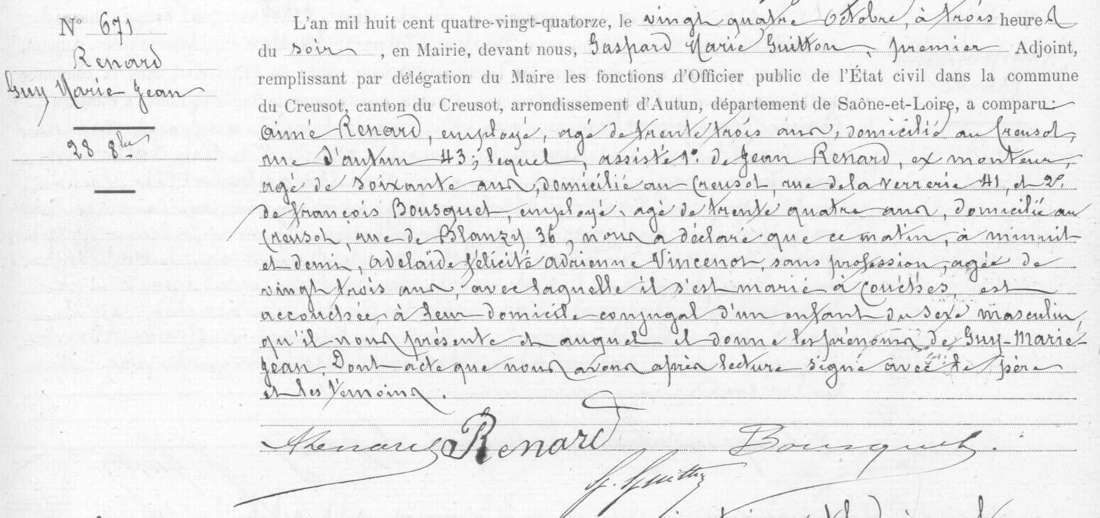 N° 671
Renard
Guy Marie Jean
28 8bre
L'an mil huit cent quatre-vingt-quatorze, le vingt quatre Octobre, à trois heures
du soir, en Mairie, devant nous, Gaspard Marie Guitton, premier Adjoint,
remplissant par délégation du Maire les fonctions d'Officier public de l'État civil dans la commune
du Creusot, canton du Creusot, arrondissement d'Autun, département de Saône-et-Loire, a comparu:
Aimé Renard, employé, agé de trente trois ans, domicilié au Creusot,
rue d'autun 43; lequel, assisté 1° de Jean Renard, ex monteur,
agé de soixante ans, domicilié au Creusot, rue de la verrerie 41, et 2°
de françois Bousquet, employé, agé de trente quatre ans, domicilié au
Creusot, rue de Blanzy 36, nous a déclaré que ce matin, à minuit
et demi, adelaïde félicité adrienne Vincenot, sans profession, agée de
vingt trois ans, avec laquelle il s'est marié à Couches, est
accouchée, à leur domicile conjugal d'un enfant du sexe masculin,
qu'il nous présente et auquel il donne les prénoms de Guy-Marie-
Jean. Dont acte que nous avons après lecture signé avec le père
et les témoins.
ARenard Renard Bousquet.
G. Guitton